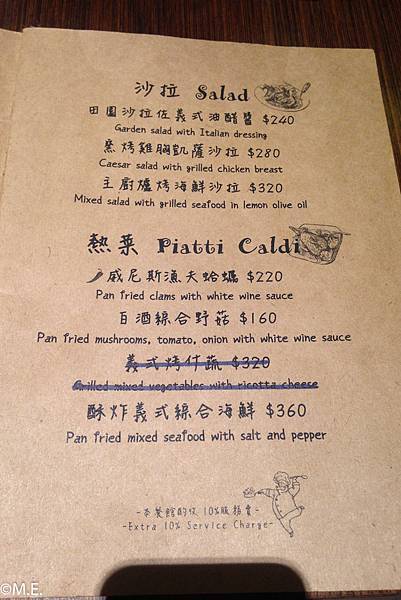 沙拉 Salad
田園沙拉佐義式油醋醬 $240
Garden salad with Italian dressing
窯烤雞胸凱薩沙拉 $280
Caesar salad with grilled chicken breast
主廚爐烤海鮮沙拉 $320
Mixed salad with grilled seafood in lemon olive oil
熱菜 Piatti Caldi
威尼斯漁夫蛤蠣 $220
Pan fried clams with white wine sauce
白酒綜合野菇 $160
Pan fried mushrooms, tomato, onion with white wine sauce
義式烤什蔬 $320
Grilled mixed vegetables with ricotta cheese
酥炸義式綜合海鮮 $360
Pan fried mixed seafood with salt and pepper
-本餐館酌收 10%服務費-
-Extra 10% Service Charge-
©M.E.